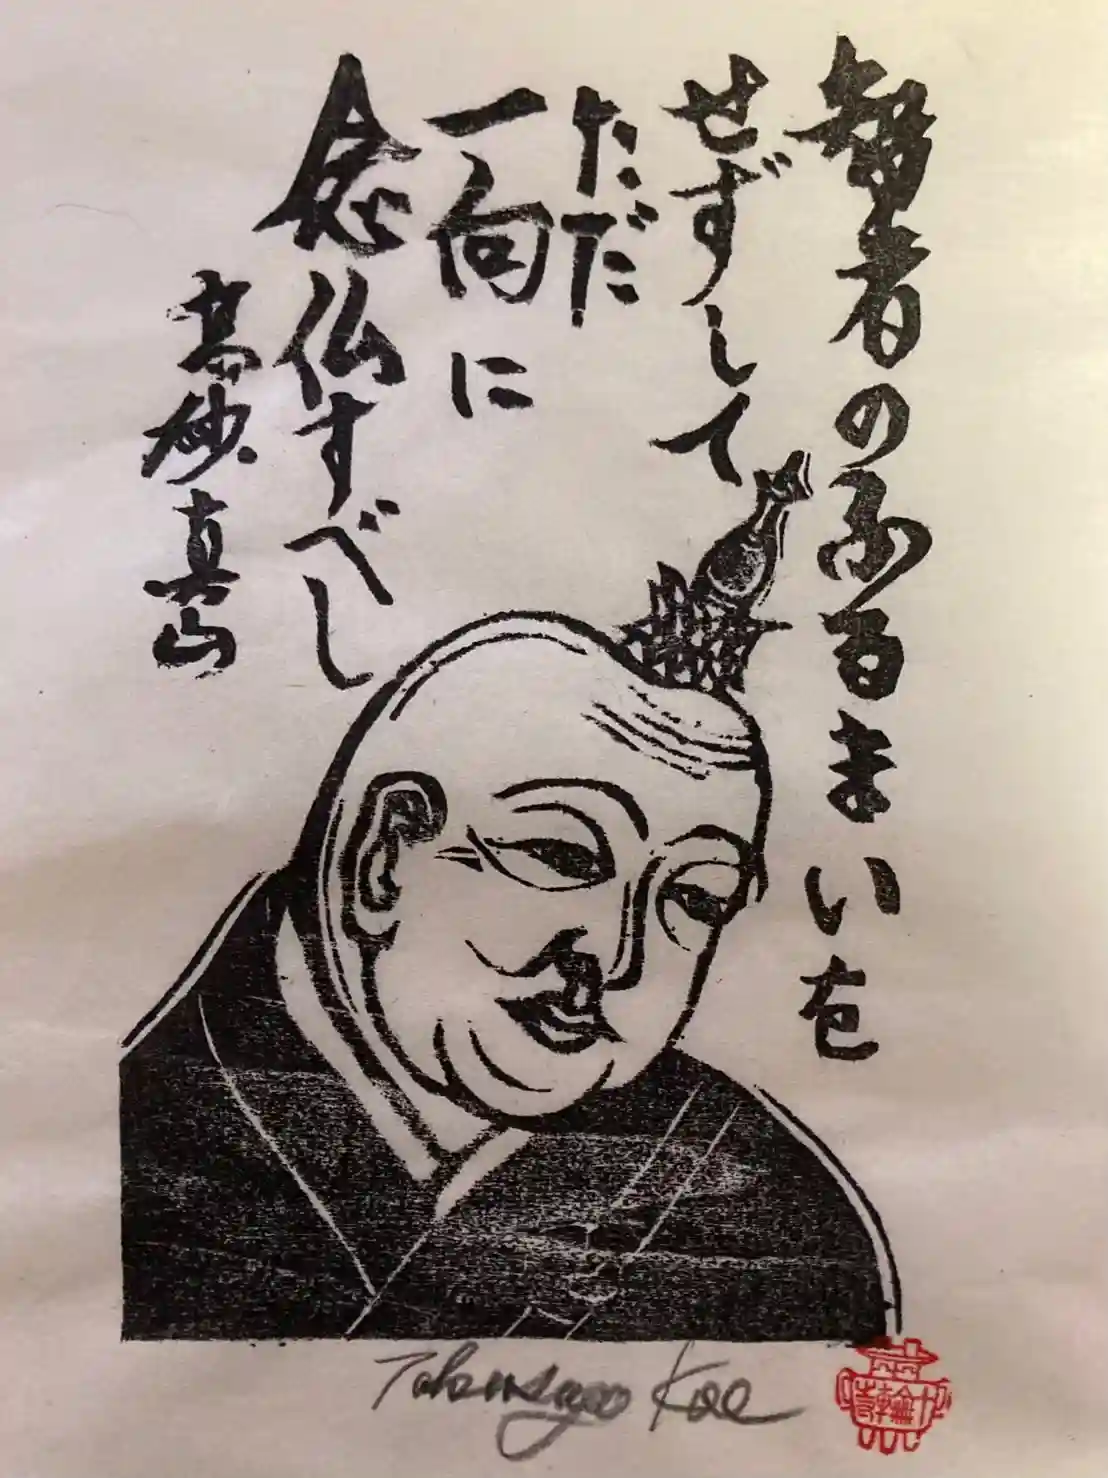 智者のふるまいを
せずして
ただ
一向に
念仏すべし
高砂真山
Takasago Kae